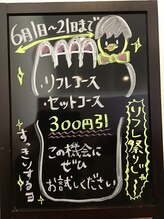 6月1日〜21日まで
リフレ祭りじゃ
・リフレコース
・セットコース
300円引
この機会に
ぜひ
お試しください
すっきりするヨ